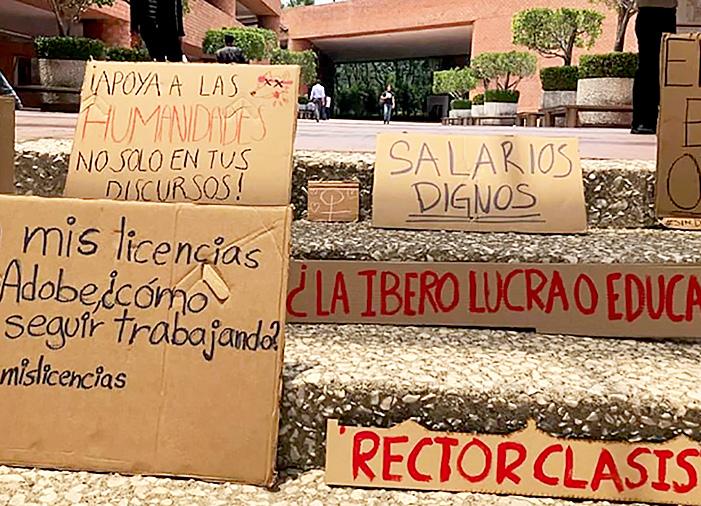 ¡APOYA A LAS
HUMANIDADES
NO SOLO EN TUS
DISCURSOS!
SALARIOS
DIGNOS
mis licencias
Adobe, ¿cómo
seguir trabajando?
mislicencias
¿LA IBERO LUCRA O EDUCA
RECTOR CLASIS